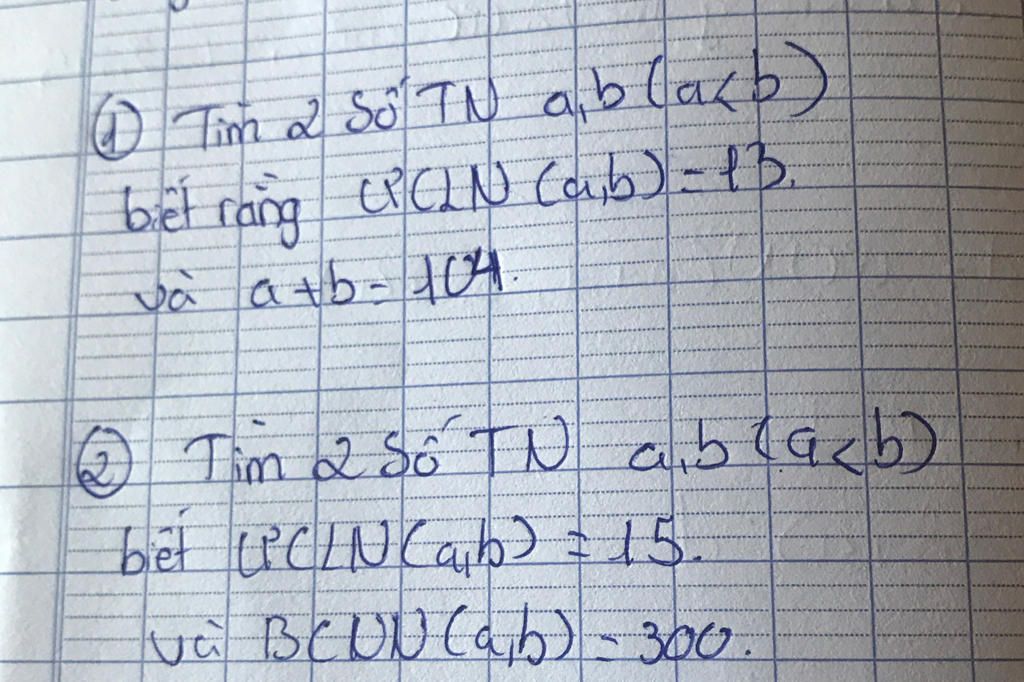 ① Tìm 2 số TN a,b (a<b)
biết rằng ƯCLN (a,b) = 13.
và a+b = 104.
② Tìm 2 số TN a,b (a<b)
biết ƯCLN (a,b) = 15.
và BCNN (a,b) = 300.